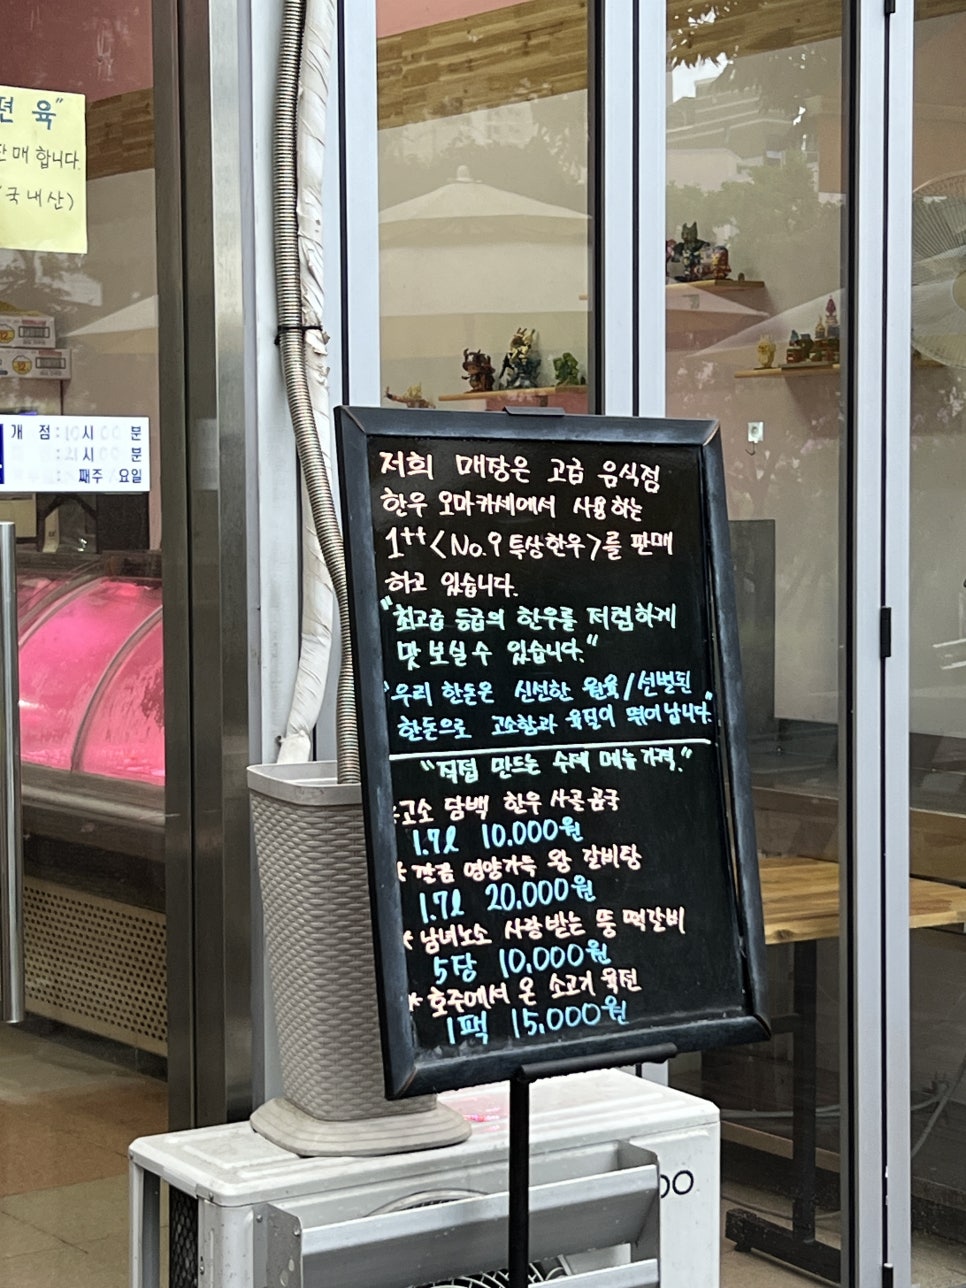 편 육"
판매합니다.
(국내산)
개 점: 시 분
시 분
째주 요일
저희 매장은 고급 음식점
한우 오마카세에서 사용하는
1++<No.9 특상한우>를 판매
하고 있습니다.
"최고급 등급의 한우를 저렴하게
맛 보실 수 있습니다."
"우리 한돈은 신선한 원육/선별된
한돈으로 고소함과 육질이 뛰어납니다."
"직접 만드는 수제 메뉴 가격."
고소 담백 한우 사골곰국
1.7l 10,000원
깔끔 영양가득 왕 갈비탕
1.7l 20,000원
* 남녀노소 사랑받는 뚱 떡갈비
5장 10,000원
* 호주에서 온 소고기 육전
1팩 15,000원